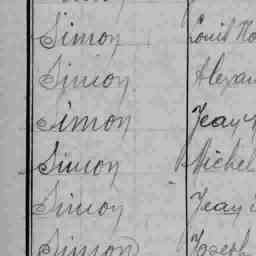 Simon Louis
Simon Alexan
Simon Jean
Simon Michel
Simon Jean
Simon Joseph